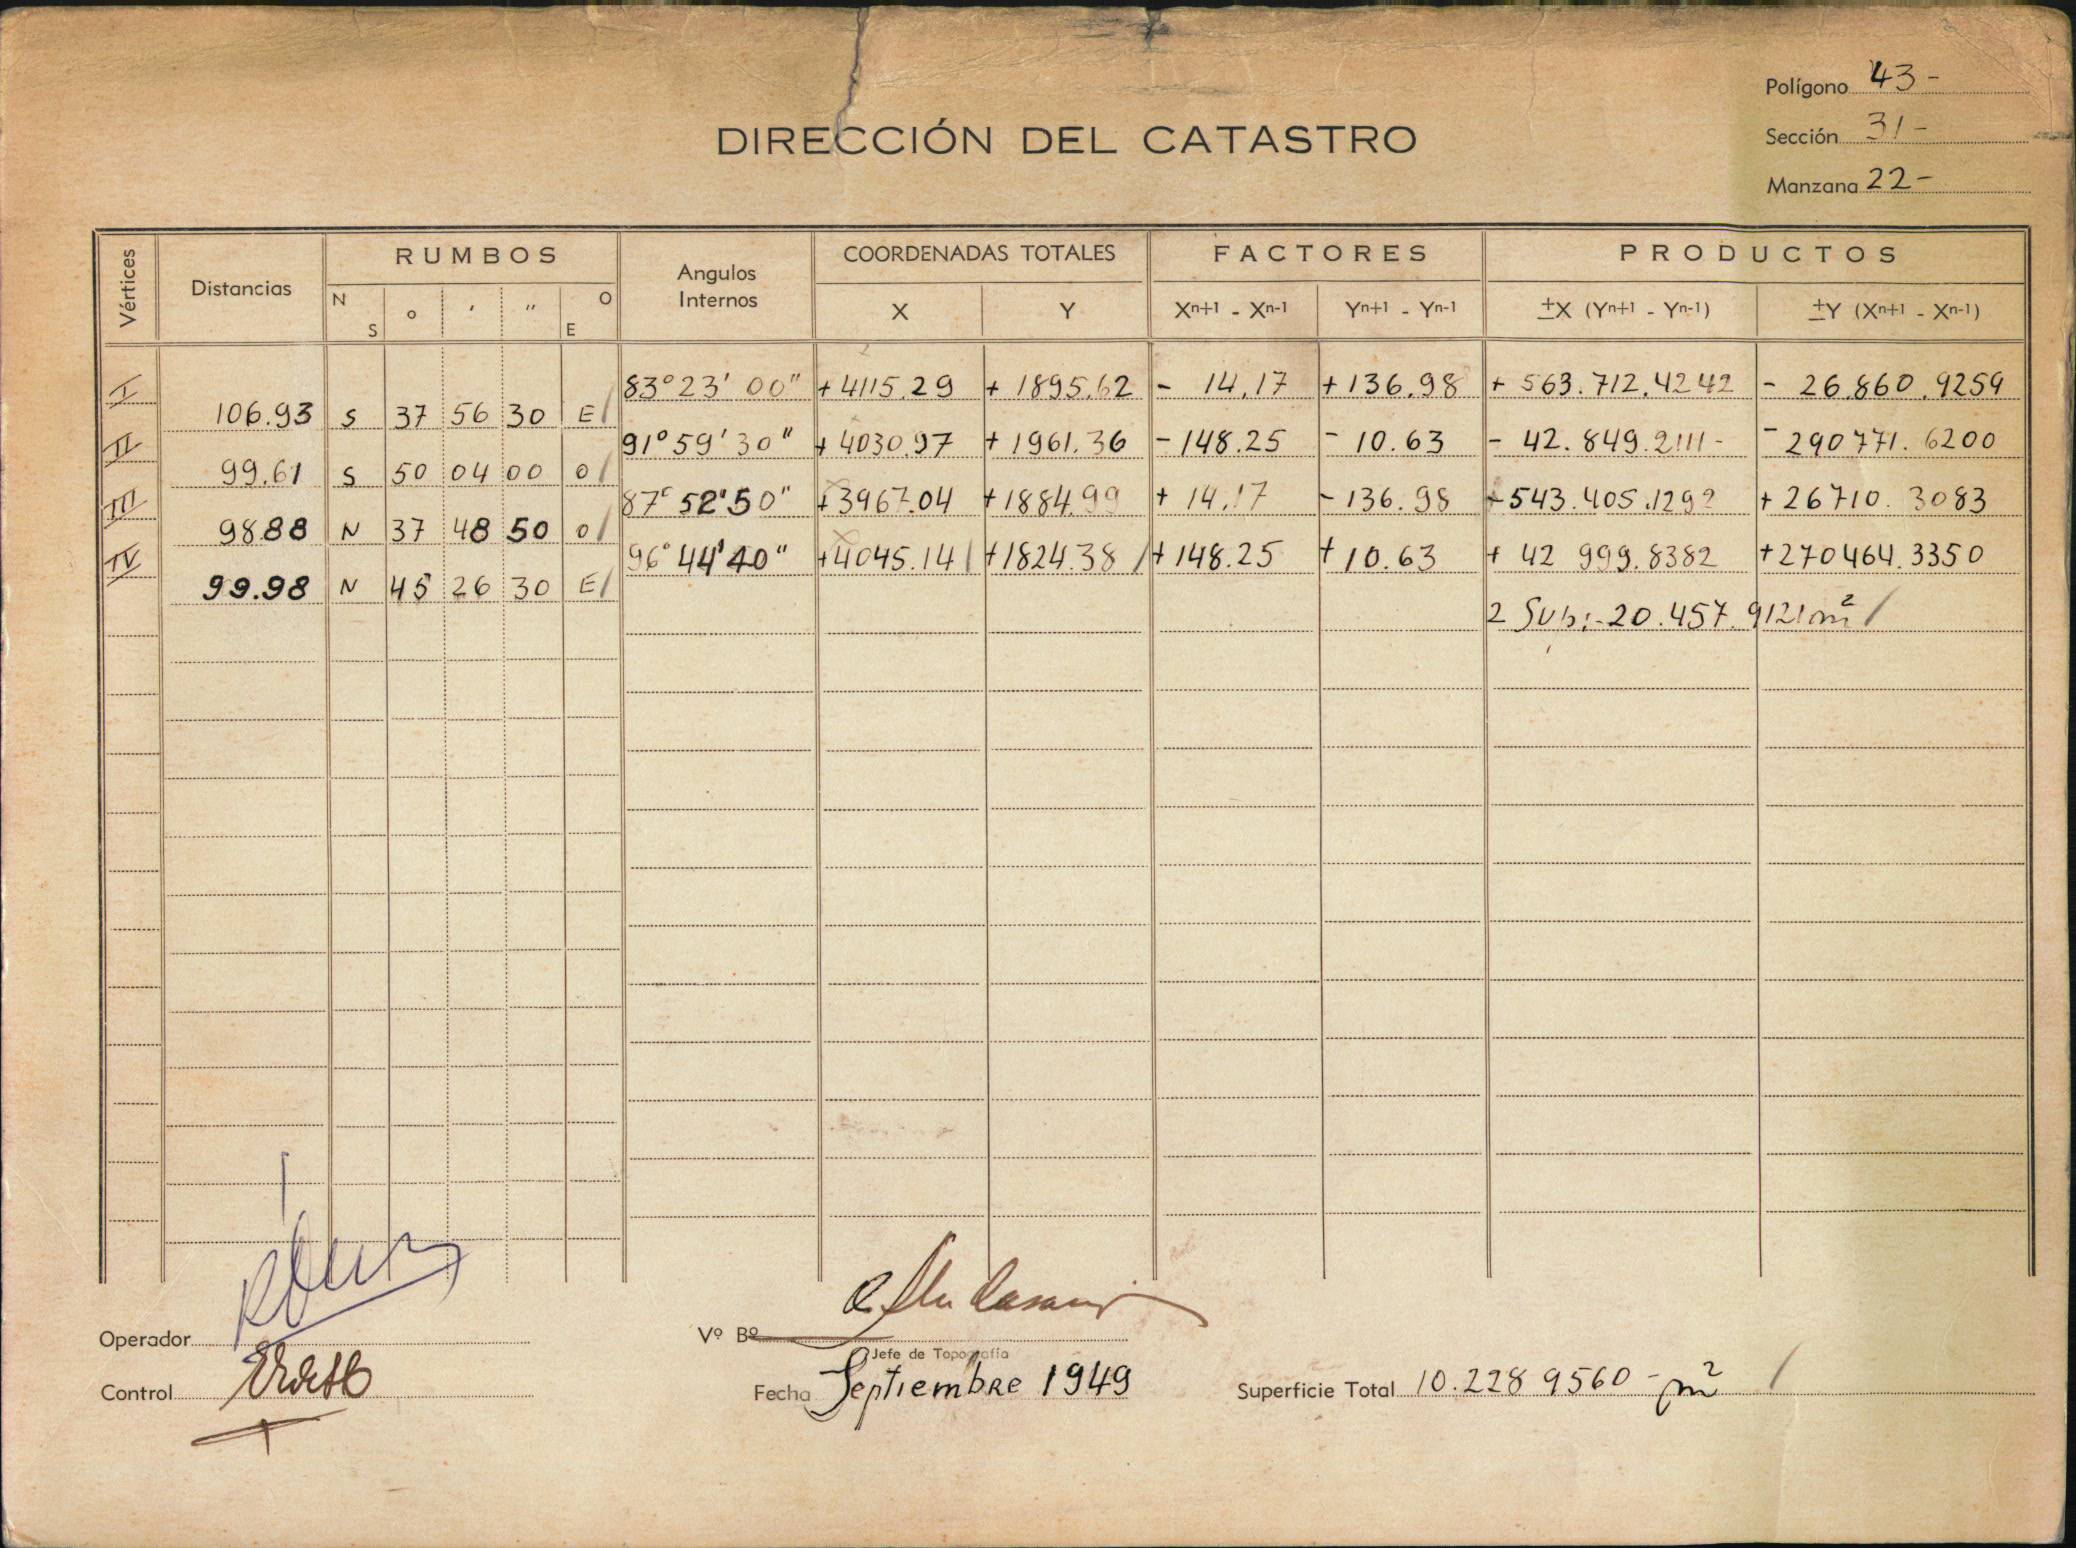 Polígono 43-
Sección 31-
Manzana 22-
DIRECCIÓN DEL CATASTRO
Vértices Distancias RUMBOS Angulos Internos COORDENADAS TOTALES FACTORES PRODUCTOS
N S ° ' '' O E X Y Xn+1 - Xn-1 Yn+1 - Yn-1 ±X (Yn+1 - Yn-1) ±Y (Xn+1 - Xn-1)
I 83° 23' 00" +4115.29 + 1895.62 - 14.17 +136.98 + 563.712.4242 - 26.860.9259
106.93 S 37 56 30 E
II 91° 59' 30" + 4030.97 + 1961.36 -148.25 - 10.63 - 42.849.2111- -290771.6200
99.61 S 50 04 00 O
III 87° 52' 50" +3967.04 +1884.99 + 14.17 -136.98 -543.405.1292 +26710.3083
98.88 N 37 48 50 O
IV 96° 44' 40" +4045.14 +1824.38 +148.25 +10.63 + 42 999.8382 +270464.3350
99.98 N 45 26 30 E
2 Sub:-20.457.9121m²
Operador
Vº Bº
Jefe de Topografía
Control
Fecha Septiembre 1949
Superficie Total 10.228 9560 - m²